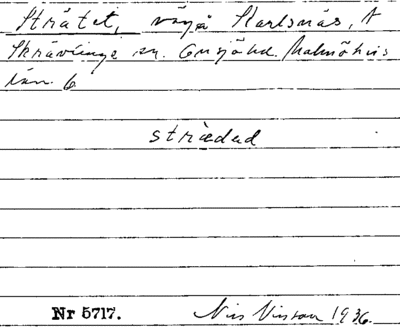 Strätet, väg i Starlsnäs, A
Skrävlinge sn. Oxie hd. Malmöhus
län. 6
strädad
Nr 5717.
Nils Nilsson 1936.